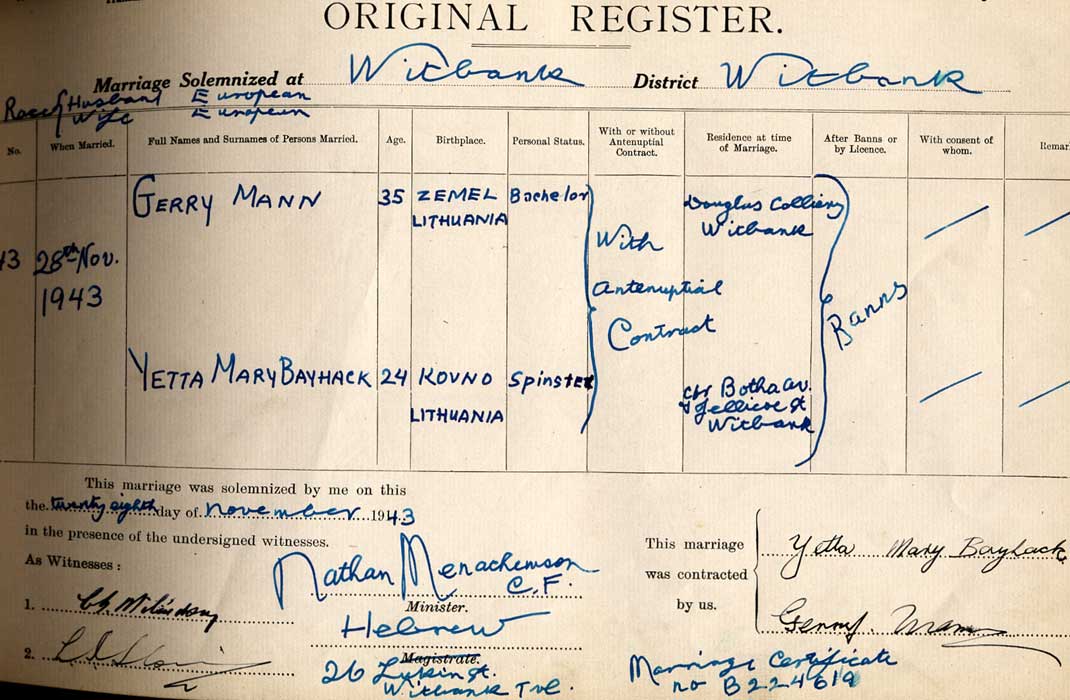 ORIGINAL REGISTER.
Marriage Solemnized at Witbank District Witbank
Race of Husband European
Wife European
No. When Married. Full Names and Surnames of Persons Married. Age. Birthplace. Personal Status. With or without Antenuptial Contract. Residence at time of Marriage. After Banns or by Licence. With consent of whom. Remar
GERRY MANN 35 ZEMEL LITHUANIA Bachelor Douglas Colliery Witbank
28th Nov. 1943
With Antenuptial Contract
Banns
YETTA MARY BAYHACK 24 KOVNO LITHUANIA Spinster cor Botha av. & Jellicoe st Witbank
This marriage was solemnized by me on this
the twenty eighth day of november 1943
in the presence of the undersigned witnesses.
As Witnesses :
Nathan Menachemson
C.F.
Minister.
Hebrew
Magistrate.
1.
2.
26 st.
Witbank Tvl.
This marriage
was contracted
by us.
Yetta Mary Bayhack
Gerry Mann
Marriage Certificate
no B224619